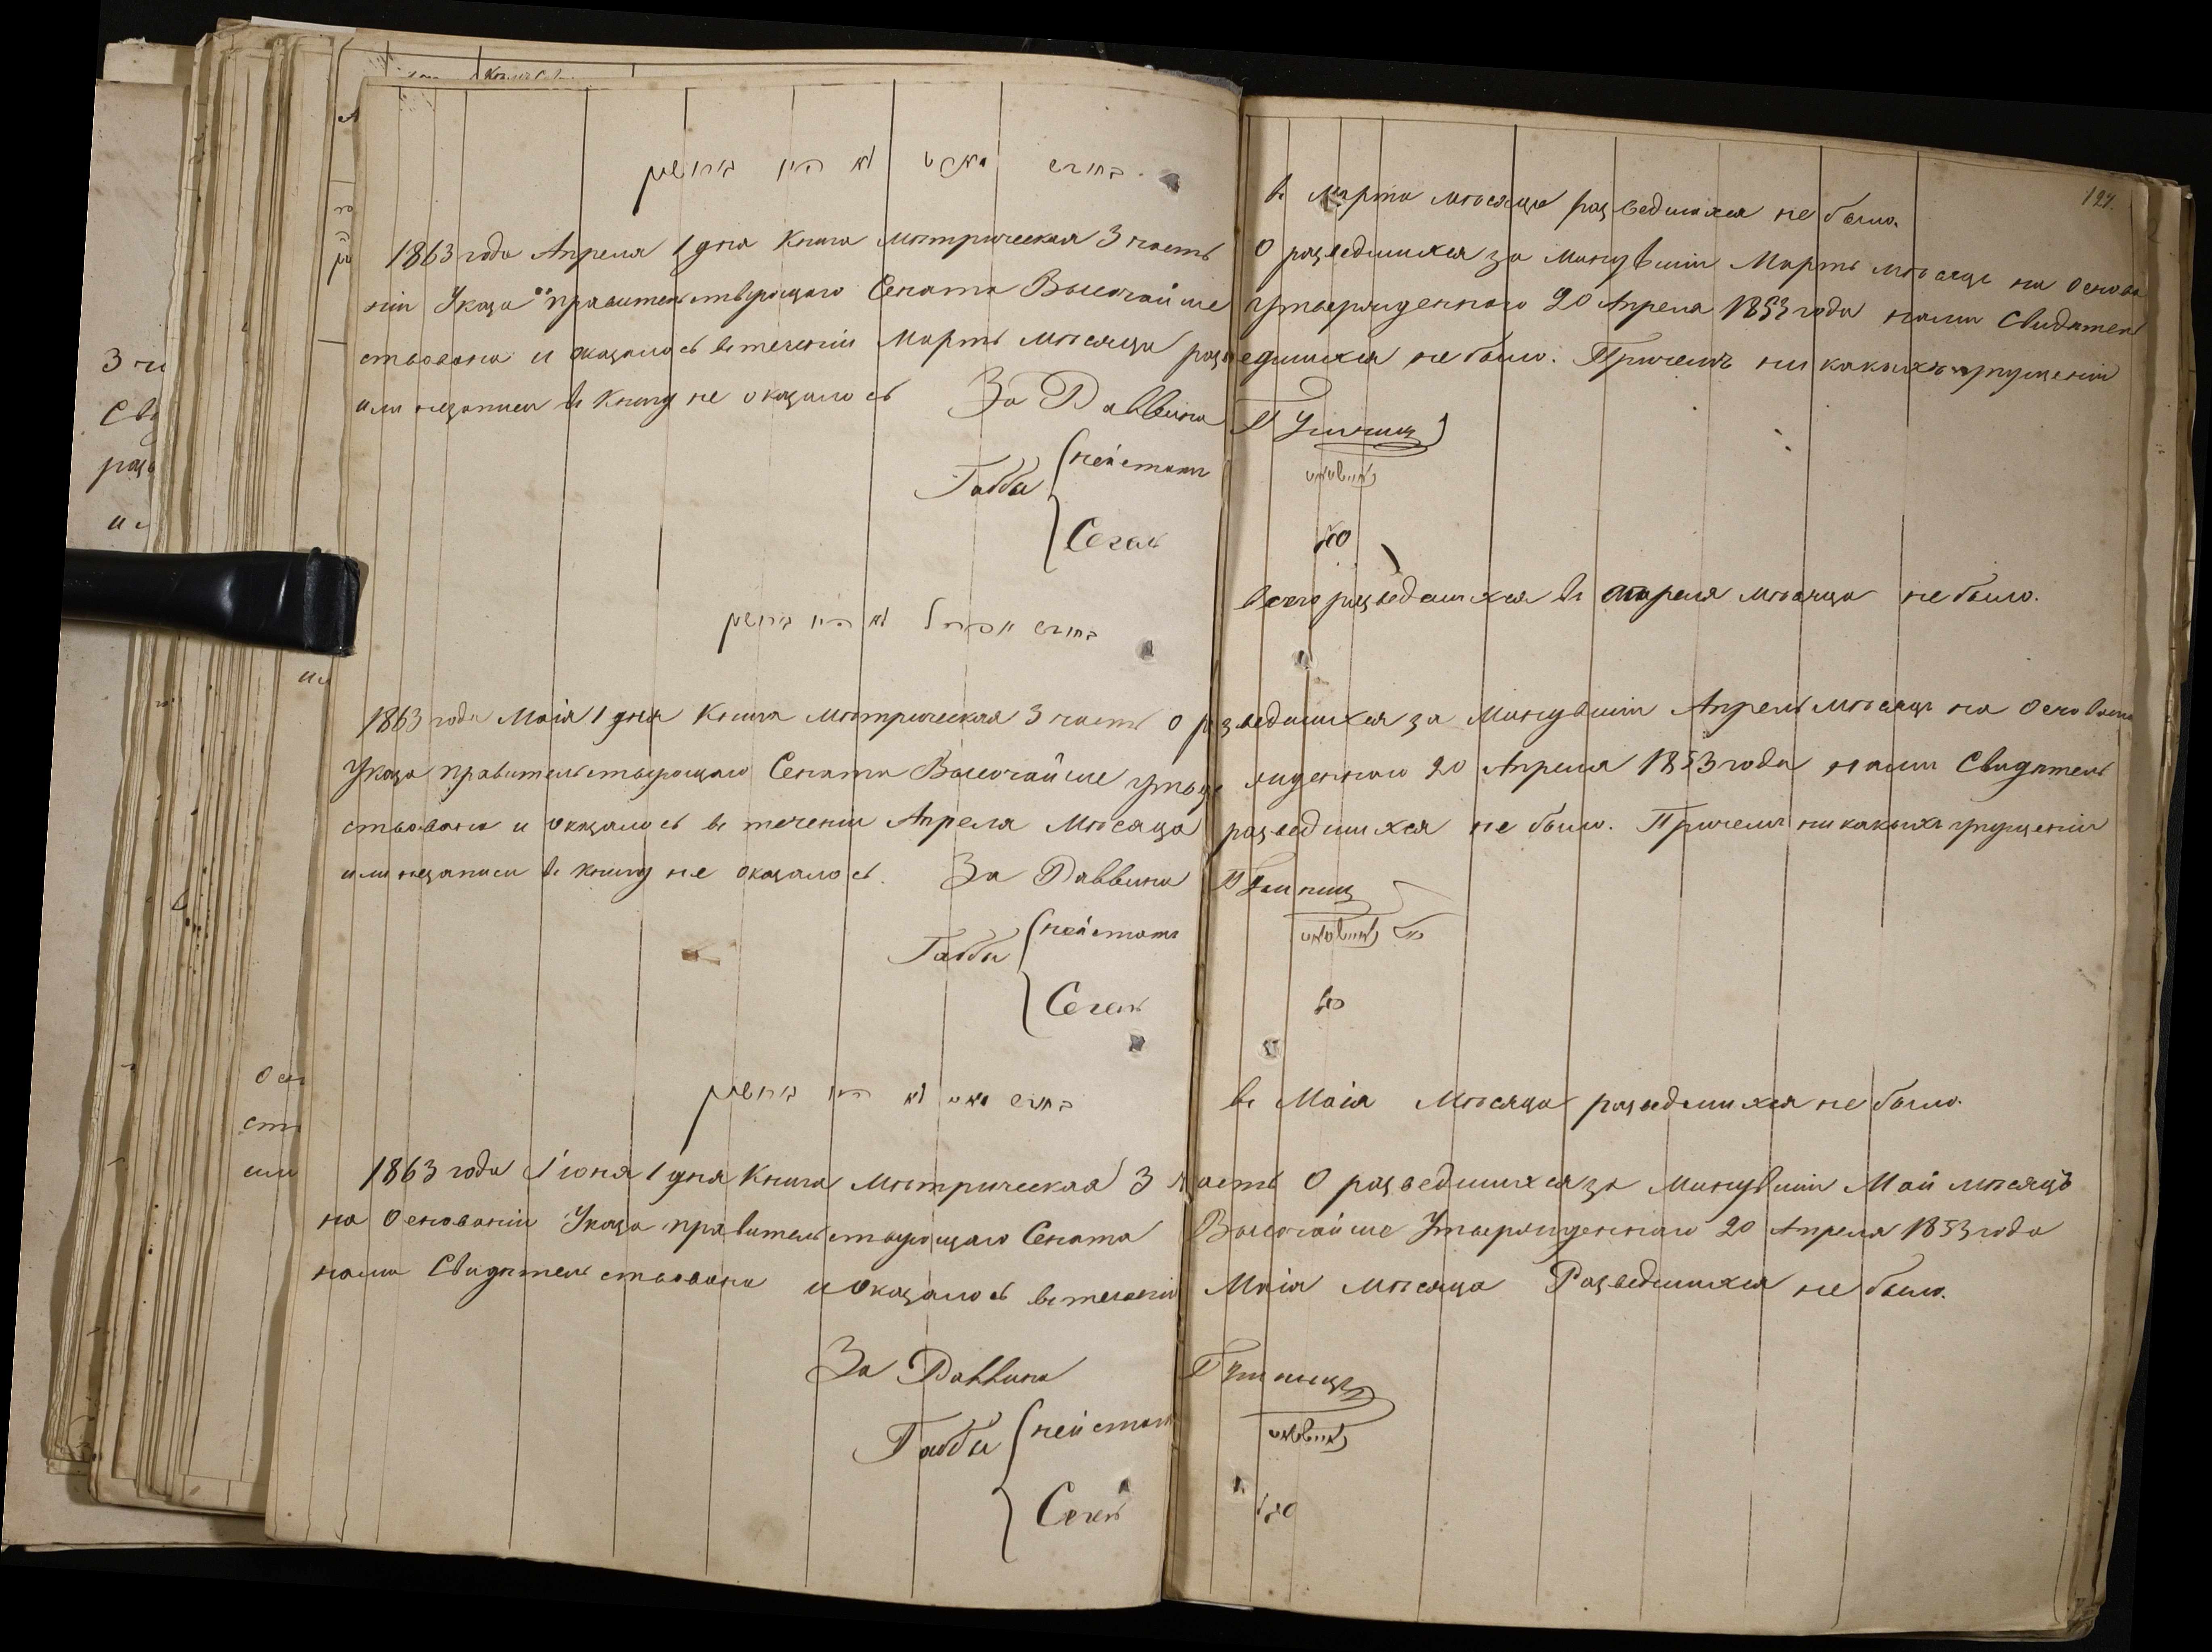 בחודש מארט לא היו גירושין
въ Марта мѣсяца разведшихся не было.
124.
1863 года Апреля 1 дня Книга Мѣтрическая 3 часть О разведшихся за Минувшій Мартъ мѣсяцъ на Основа
ніи Указа правительствующаго Сената Высочайше утвержденного 20 Апреля 1853 года нами Свидѣтель
ствована и оказалось въ теченіи Мартъ Мѣсяца разведшихся не было. Причемъ ни какихъ упущеній
или незаписи въ книгу не оказалось За Раввина
Габбы нейстатъ
Сегаль סג״ל
всего разведшихся въ апреля мѣсяца не было.
בחודש אפריל לא היו גירושין
1863 года Маія 1 дня Книга Мѣтрическая 3 часть О разведшихся за Минувшій Апрель мѣсяцъ на Основаніи
Указа правительствующаго Сената Высочайше утвержденнаго 20 Апреля 1853 года нами Свидѣтель
ствована и оказалось въ теченіи Апреля Мѣсяца разведшихся не было. Причемъ ни какихъ упущеній
или незаписи въ книгу не оказалось. За Раввина
Габбы нейстатъ
Сегаль סג״ל
בחודש מאי לא היו גירושין
въ Маія Мѣсяца разведшихся не было.
1863 года Іюня 1 дня Книга Мѣтрическая 3 часть О разведшихся за Минувшій Май мѣсяцъ
на Основаніи Указа правительствующаго Сената Высочайше Утвержденнаго 20 Апреля 1853 года
нами Свидѣтельствована и Оказалось въ теченіи Маія мѣсяца Разведшихся не было.
За Раввина
Габбы нейстатъ
Сегаль סג״ל